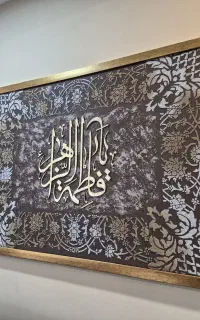 يا فاطمة الزهرا